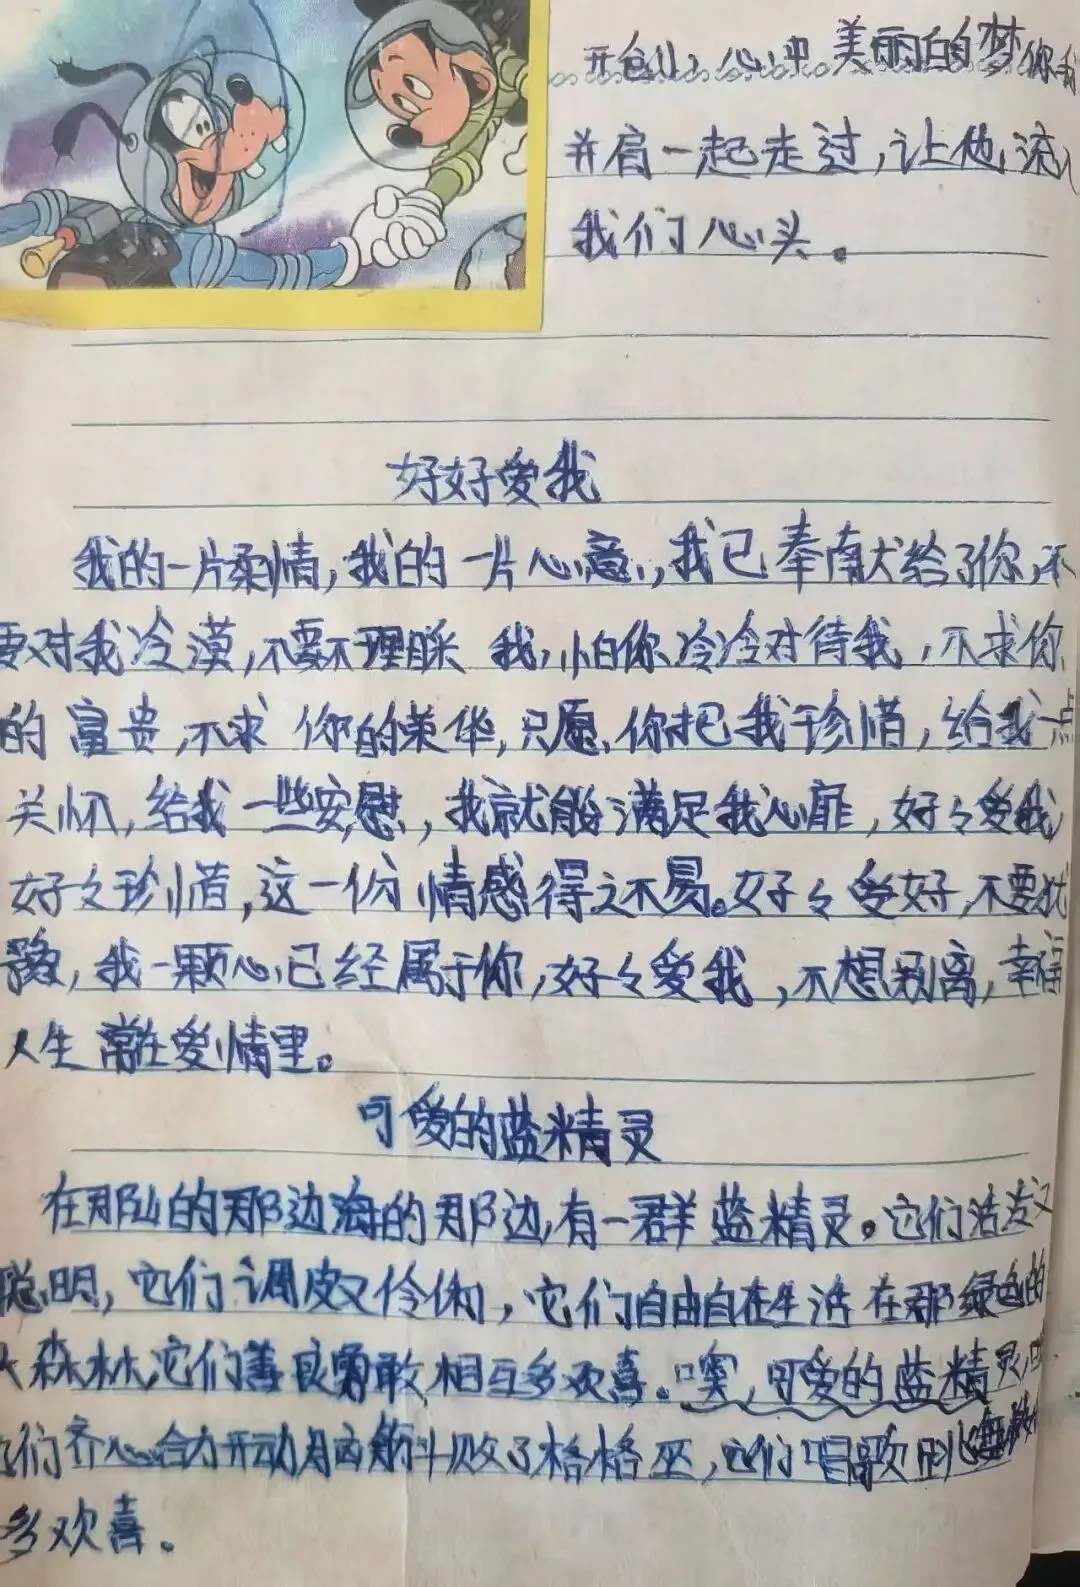 开创心中美丽的梦你我
并肩一起走过,让他流
我们心头。
好好爱我
我的一片柔情,我的一片心意,我已奉献给了你,不
要对我冷漠,不要不理睬 我,怕你冷冷对待我,不求你
的富贵,不求 你的荣华,只愿你把我珍惜,给我一点
关怀,给我一些安慰,我就能满足我心扉,好々爱我
好々珍惜,这一份情感得之不易。好々爱好,不要犹
豫,我一颗心已经属于你,好々爱我,不想别离,幸福
人生常在爱情里。
可爱的蓝精灵
在那山的那边海的那边,有一群蓝精灵。它们活泼又
聪明,它们调皮又伶俐,它们自由自在生活在那绿色的
大森林,它们善良勇敢相互多欢喜。噢,可爱的蓝精灵,
它们齐心合力开动脑筋斗败了格格巫,它们唱歌跳舞
多欢喜。